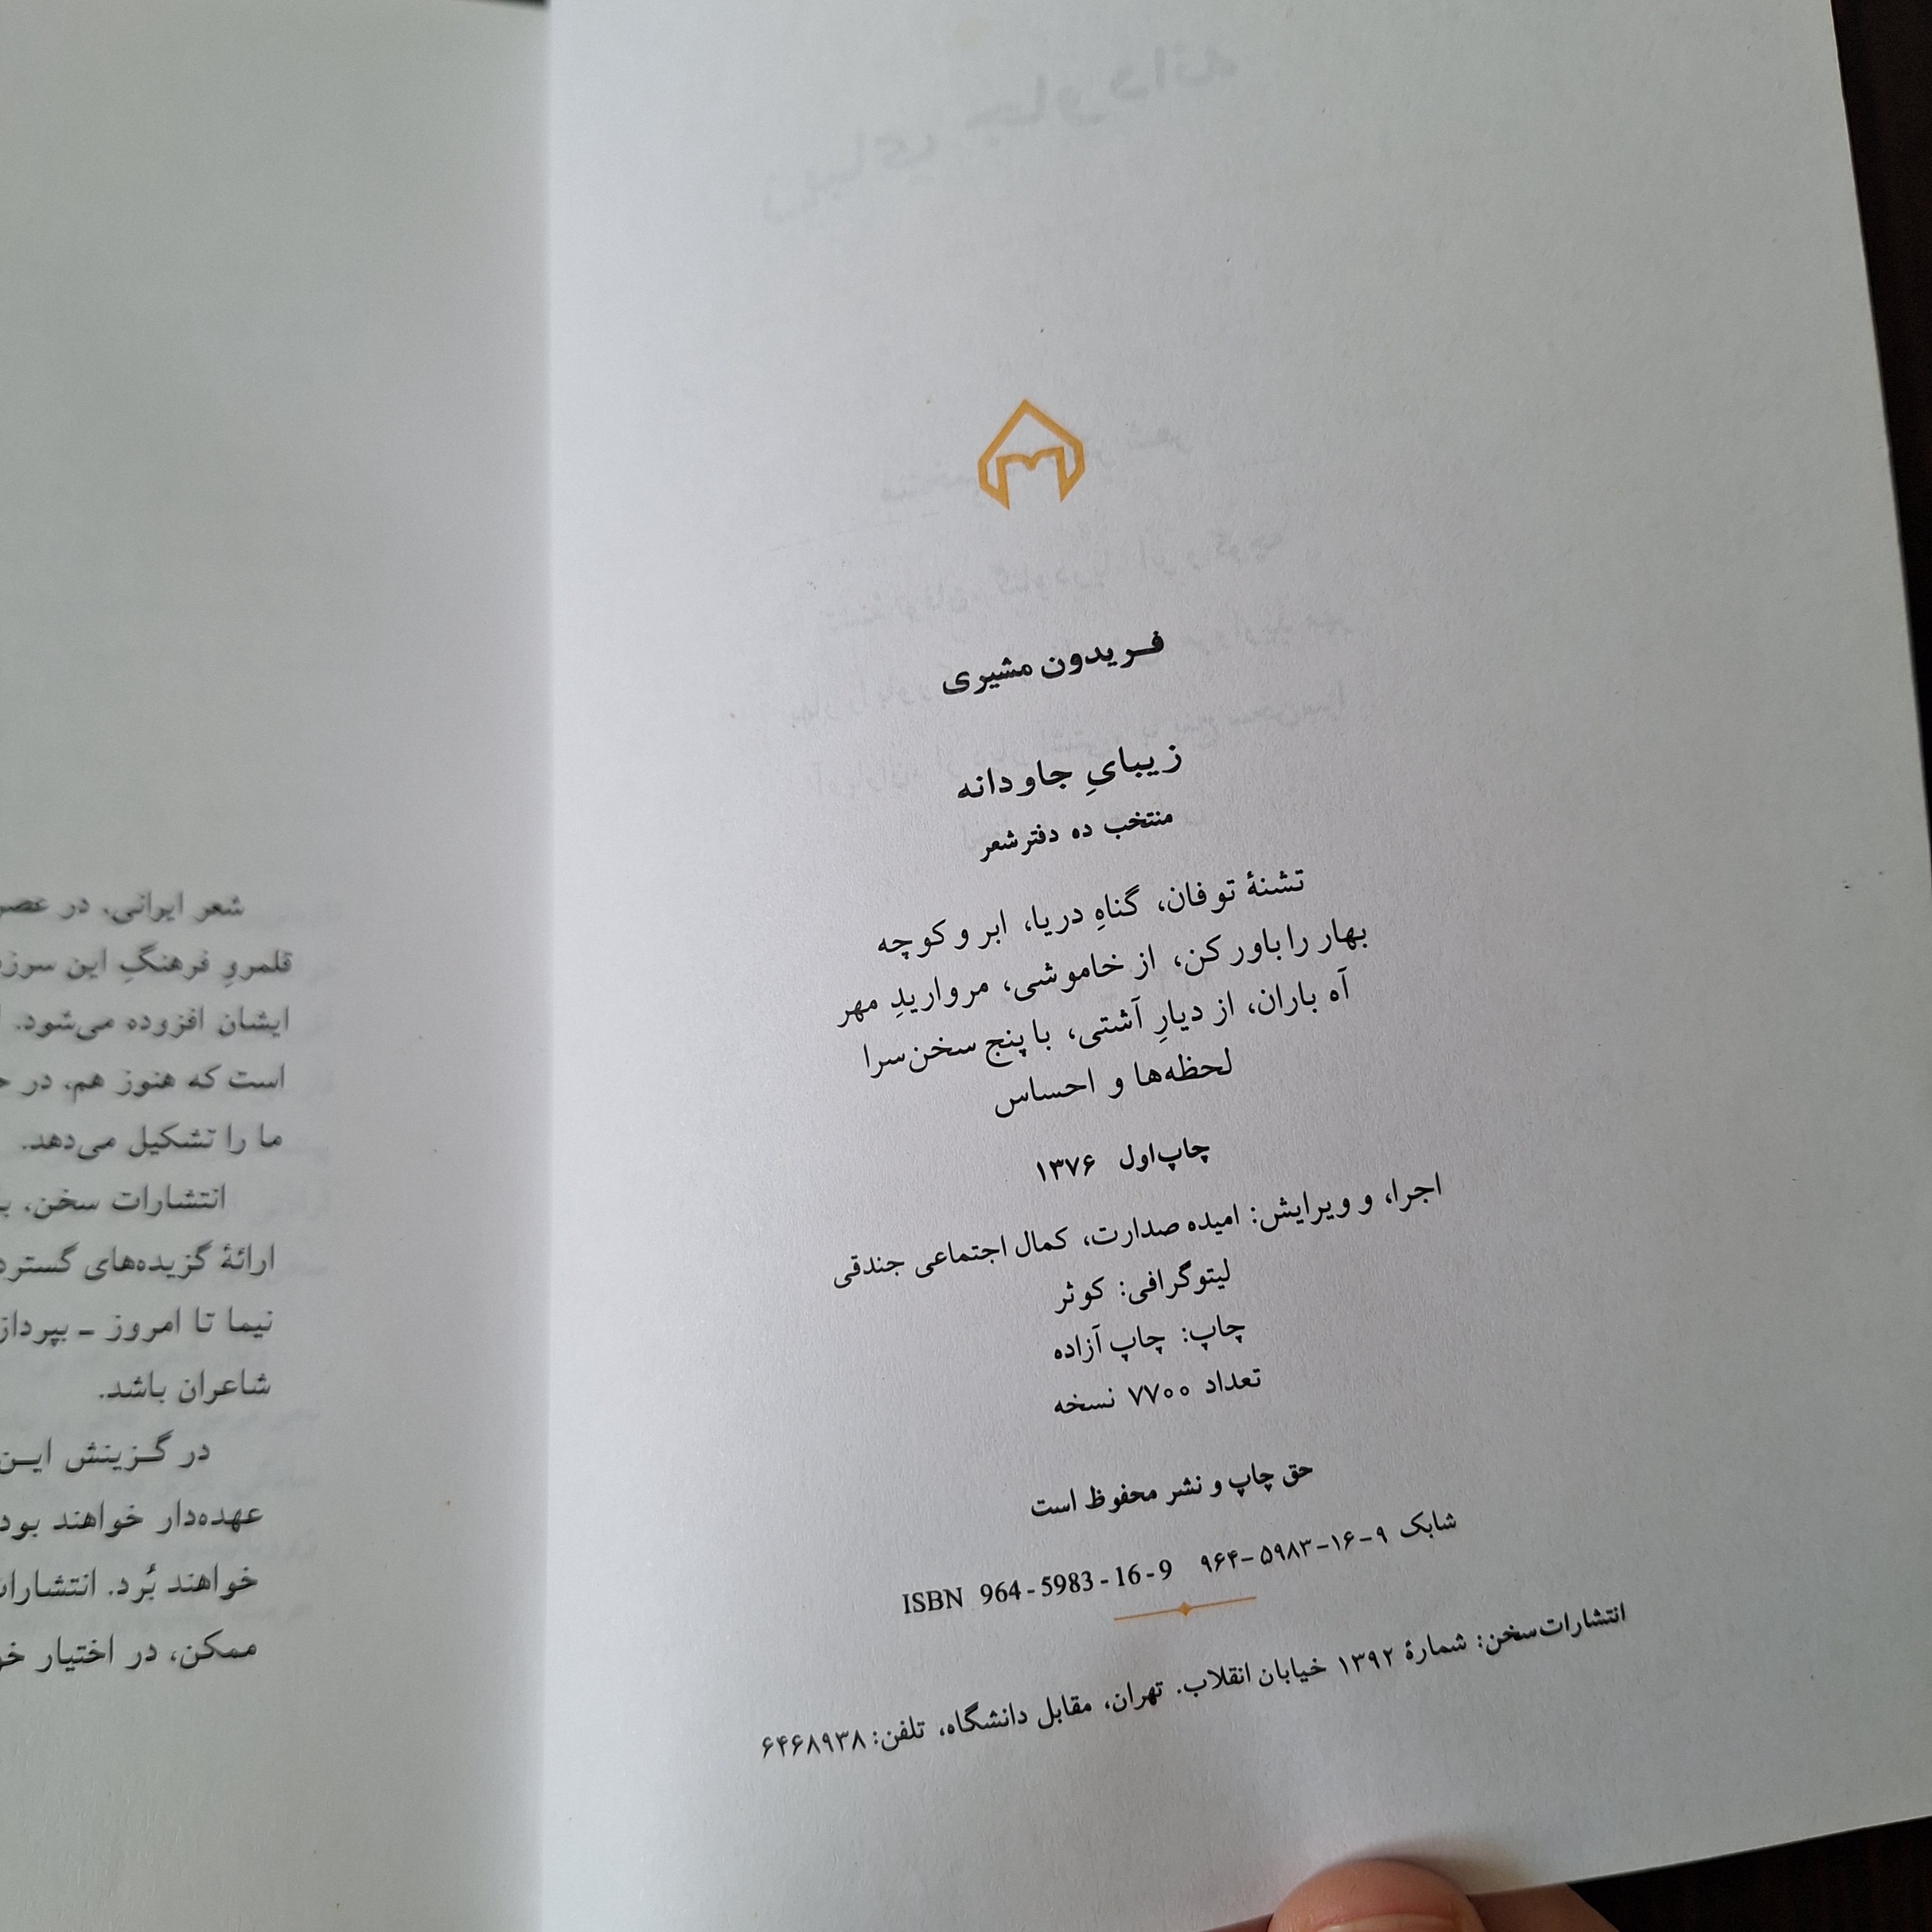 فریدون مشیری
زیبایِ جاودانه
منتخب ده دفتر شعر
تشنهٔ توفان، گناهِ دریا، ابر و کوچه
بهار را باور کن، از خاموشی، مرواریدِ مهر
آه باران، از دیارِ آشتی، با پنج سخن‌سرا
لحظه‌ها و احساس
چاپ اول ۱۳۷۶
اجرا، و ویرایش: امیده صدارت، کمال اجتماعی جندقی
لیتوگرافی: کوثر
چاپ: چاپ آزاده
تعداد ۷۷۰۰ نسخه
حق چاپ و نشر محفوظ است
شابک ۹-۱۶-۵۹۸۳-۹۶۴ ISBN 964-5983-16-9
انتشارات سخن: شمارهٔ ۱۳۹۲ خیابان انقلاب. تهران، مقابل دانشگاه، تلفن: ۶۴۶۸۹۳۸
شعر ایرانی، در عصر
قلمروِ فرهنگِ این
ایشان افزوده می‌شود.
است که هنوز هم، در
ما را تشکیل می‌دهد.
انتشارات سخن،
ارائهٔ گزیده‌های
نیما تا امروز ـ
شاعران باشد.
در گزینش ایـن
عهده‌دار خواهند
خواهند بُرد.
ممکن، در اختیار